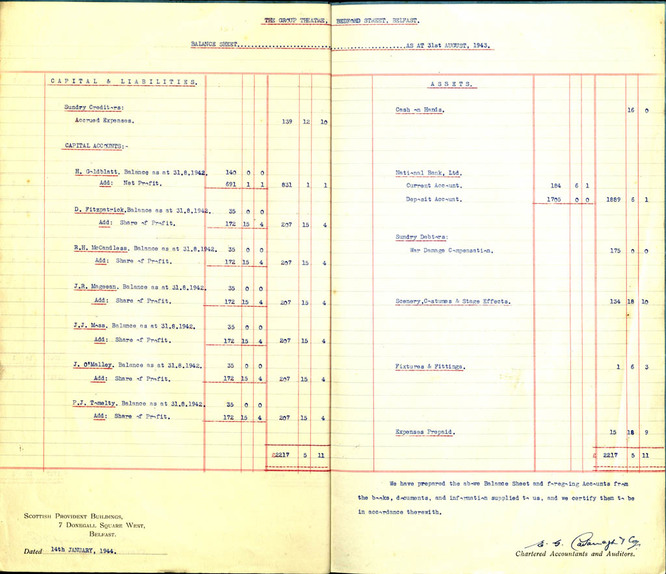 THE GROUP THEATRE, BEDFORD STREET, BELFAST.
BALANCE SHEET........................................AS AT 31st AUGUST, 1943.
CAPITAL & LIABILITIES.
Sundry Creditors:
Accrued Expenses. 139 12 10
CAPITAL ACCOUNTS:-
H. Goldblatt. Balance as at 31.8.1942. 140 0 0
Add: Net Profit. 691 1 1 831 1 1
D. Fitzpatrick. Balance as at 31.8.1942. 35 0 0
Add: Share of Profit. 172 15 4 207 15 4
R.H. McCandless. Balance as at 31.8.1942. 35 0 0
Add: Share of Profit. 172 15 4 207 15 4
J.R. Mageean. Balance as at 31.8.1942. 35 0 0
Add: Share of Profit. 172 15 4 207 15 4
J.J. Moss. Balance as at 31.8.1942. 35 0 0
Add: Share of Profit. 172 15 4 207 15 4
J. O'Malley. Balance as at 31.8.1942. 35 0 0
Add: Share of Profit. 172 15 4 207 15 4
P.J. Tomelty. Balance as at 31.8.1942. 35 0 0
Add: Share of Profit. 172 15 4 207 15 4
£2217 5 11
SCOTTISH PROVIDENT BUILDINGS,
7 DONEGALL SQUARE WEST,
BELFAST.
Dated 14th JANUARY, 1944.
ASSETS.
Cash on Hands. 16 0
National Bank, Ltd.
Current Account. 184 6 1
Deposit Account. 1705 0 0 1889 6 1
Sundry Debtors:
War Damage Compensation. 175 0 0
Scenery, Costumes & Stage Effects. 134 18 10
Fixtures & Fittings. 1 6 3
Expenses Prepaid. 15 18 9
£ 2217 5 11
We have prepared the above Balance Sheet and foregoing Accounts from
the books, documents, and information supplied to us, and we certify them to be
in accordance therewith.
Cavanagh & Co.
Chartered Accountants and Auditors.